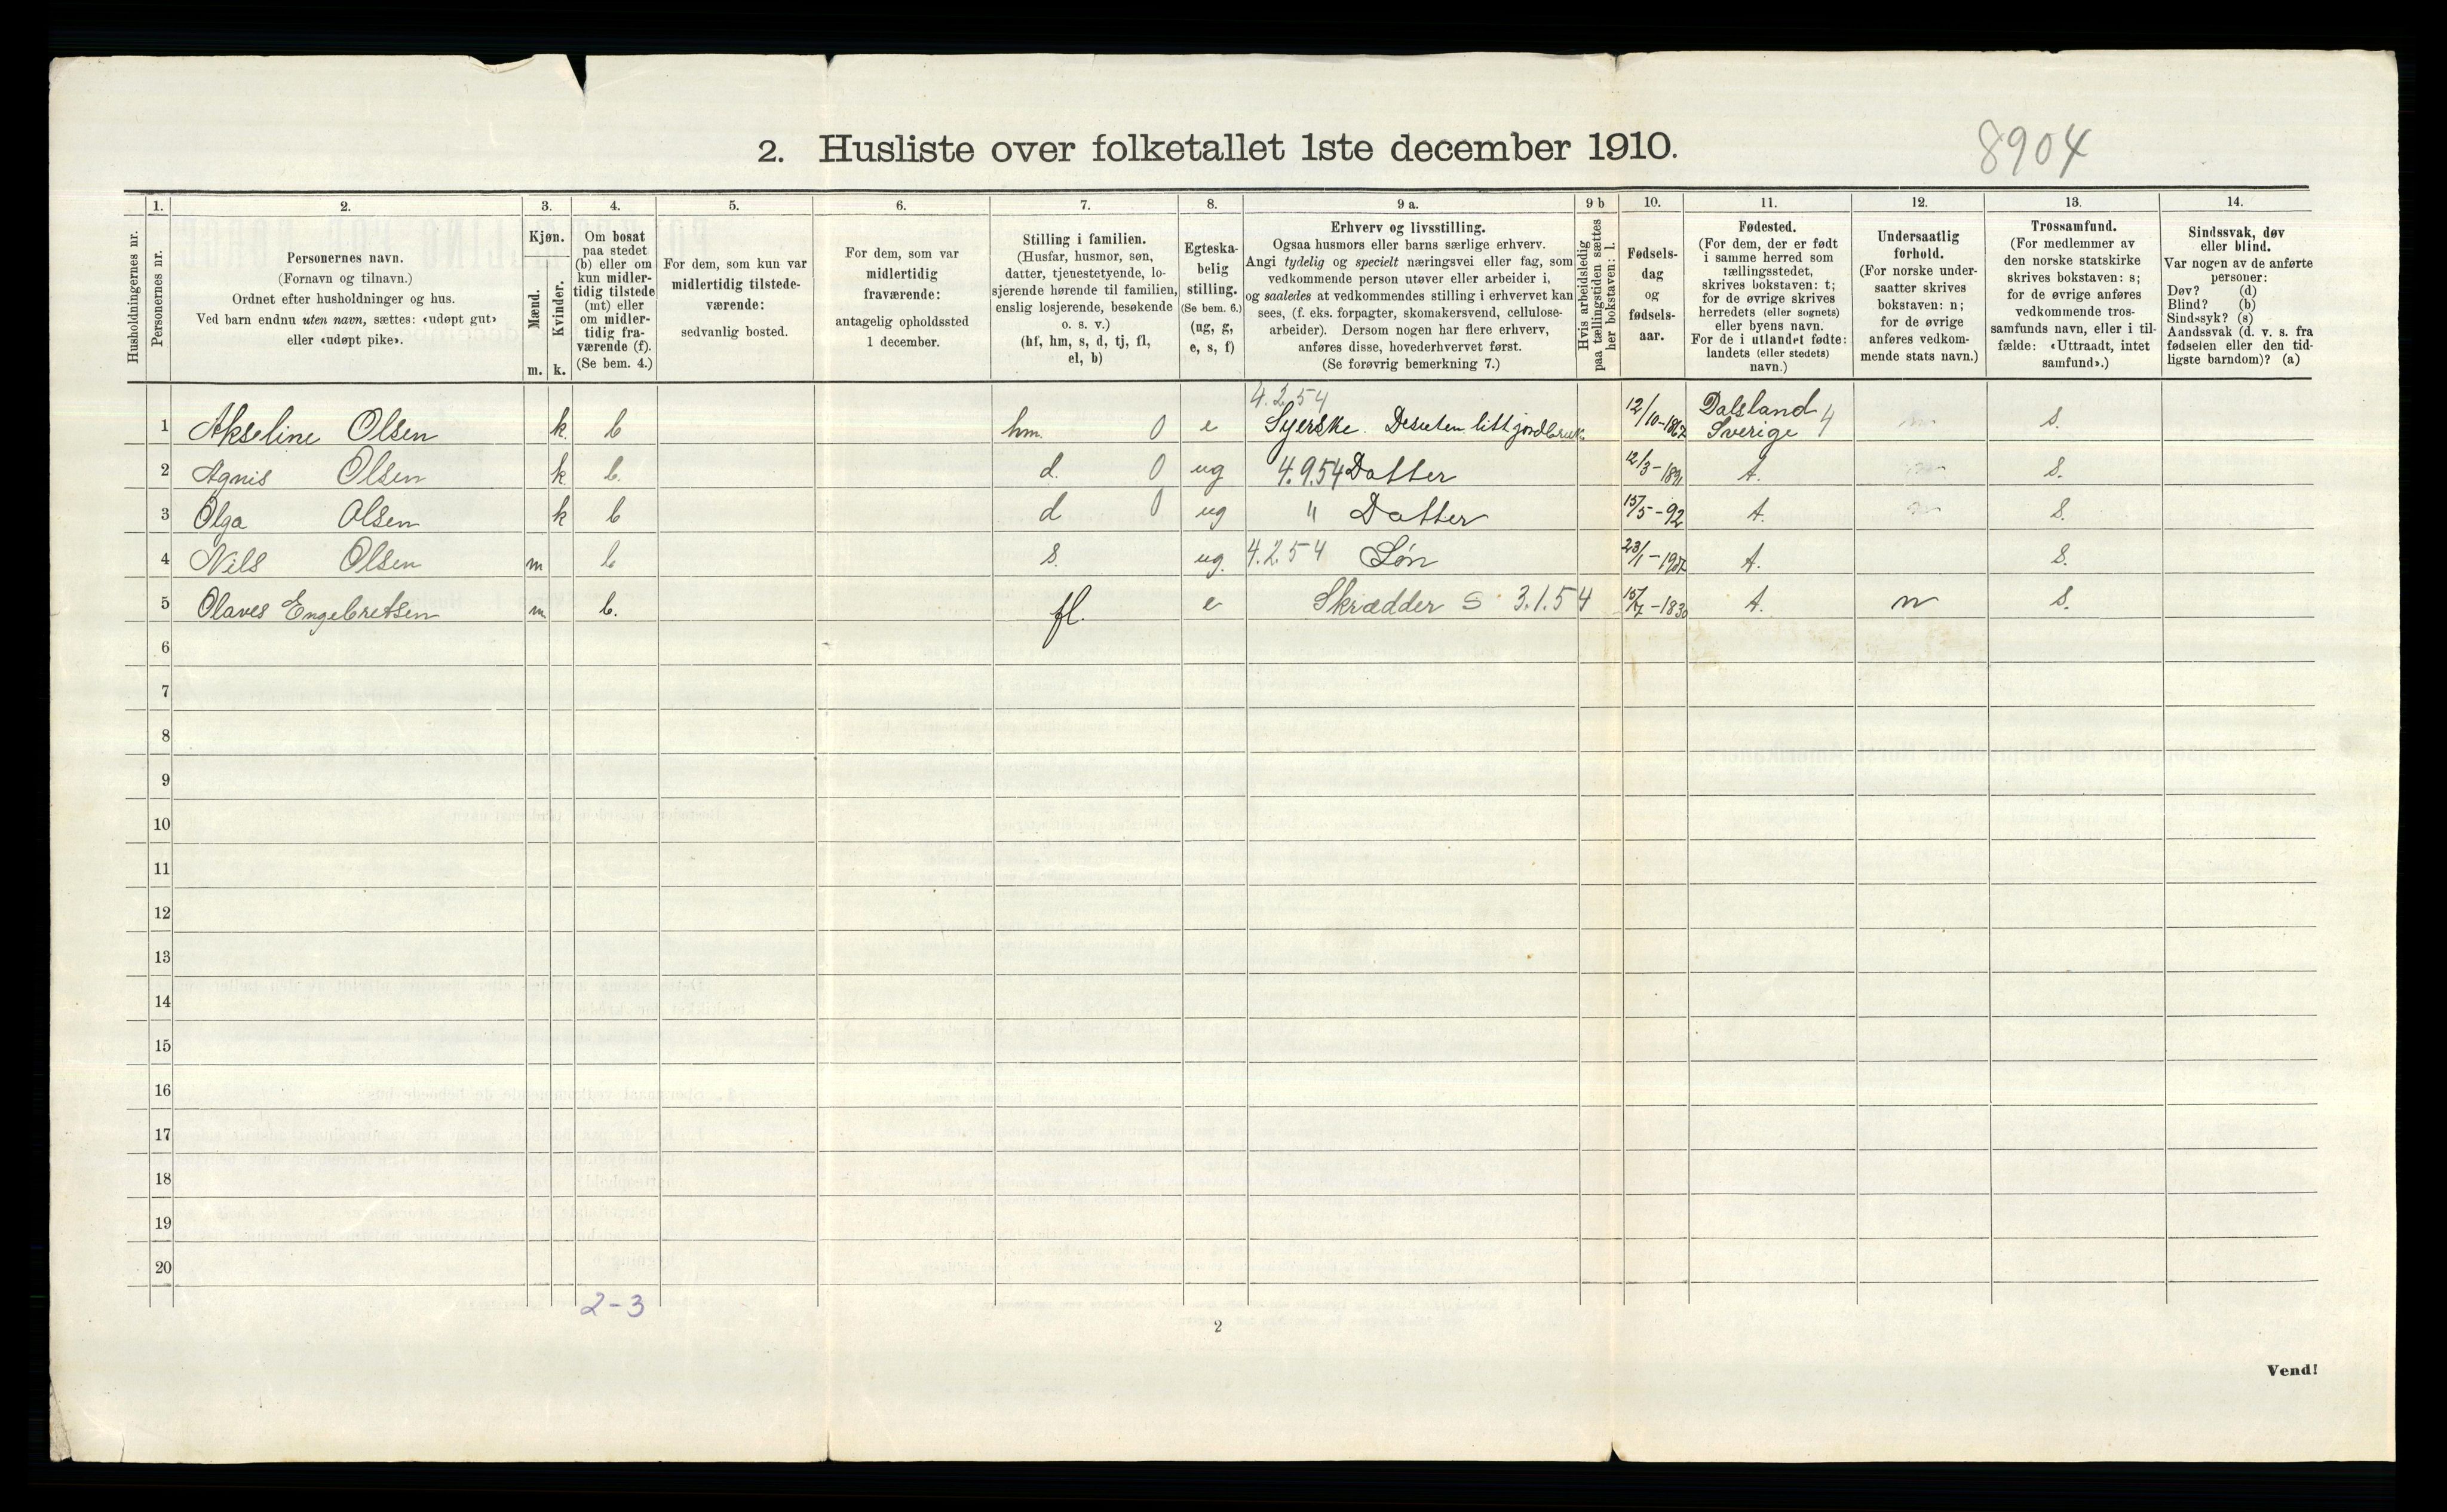 2. Husliste over folketallet 1ste december 1910.
8904
Husholdningernes nr.
1.
Personernes nr.
2.
Personernes navn.
(Fornavn og tilnavn.)
Ordnet efter husholdninger og hus.
Ved barn endnu uten navn, sættes: «udøpt gut»
eller «udøpt pike».
3.
Kjøn.
Mænd.
Kvinder.
m. k.
4.
Om bosat
paa stedet
(b) eller om
kun midler-
tidig tilstede
(mt) eller
om midler-
tidig fra-
værende (f).
(Se bem. 4.)
5.
For dem, som kun var
midlertidig tilstede-
værende:
sedvanlig bosted.
6.
For dem, som var
midlertidig
fraværende:
antagelig opholdssted
1 december.
7.
Stilling i familien.
(Husfar, husmor, søn,
datter, tjenestetyende, lo-
sjerende hørende til familien,
enslig losjerende, besøkende
o. s. v.)
(hf, hm, s, d, tj, fl,
el, b)
8.
Egteska-
belig
stilling.
(Se bem. 6.)
(ug, g,
e, s, f)
9 a.
Erhverv og livsstilling.
Ogsaa husmors eller barns særlige erhverv.
Angi tydelig og specielt næringsvei eller fag, som
vedkommende person utøver eller arbeider i,
og saaledes at vedkommendes stilling i erhvervet kan
sees, (f. eks. forpagter, skomakersvend, cellulose-
arbeider). Dersom nogen har flere erhverv,
anføres disse, hovederhvervet først.
(Se forøvrig bemerkning 7.)
9 b
Hvis arbeidsledig
paa tællingstiden sættes
her bokstaven: l.
10.
Fødsels-
dag
og
fødsels-
aar.
11.
Fødested.
(For dem, der er født
i samme herred som
tællingsstedet,
skrives bokstaven: t;
for de øvrige skrives
herredets (eller sognets)
eller byens navn.
For de i utlandet fødte:
landets (eller stedets)
navn.)
12.
Undersaatlig
forhold.
(For norske under-
saatter skrives
bokstaven: n;
for de øvrige
anføres vedkom-
mende stats navn.)
13.
Trossamfund.
(For medlemmer av
den norske statskirke
skrives bokstaven: s;
for de øvrige anføres
vedkommende tros-
samfunds navn, eller i til-
fælde: «Uttraadt, intet
samfund».)
14.
Sindssvak, døv
eller blind.
Var nogen av de anførte
personer:
Døv? (d)
Blind? (b)
Sindssyk? (s)
Aandssvak (d. v. s. fra
fødselen eller den tid-
ligste barndom)? (a)
4.2.54 Dalsland 4
1 Akseline Olsen k. b hm. 0 e Syerske. Desuten litt jordbruk 12/10-1867 Sverige n s.
2 Agnis Olsen k. b. d. 0 ug 4.9.54 Datter 12/3-1891 t. n S.
3 Olga Olsen k b d 0 ug " Datter 15/5-92 t. n S.
4 Nils Olsen m b s. ug. 4.2.54 Søn 23/1- t. S.
5 Olaves Engebretsen m b. fl. e Skrædder S 3.1.54 15/7-1830 t. n S.
6
7
8
9
10
11
12
13
14
15
16
17
18
19
20
2-3
2
Vend!